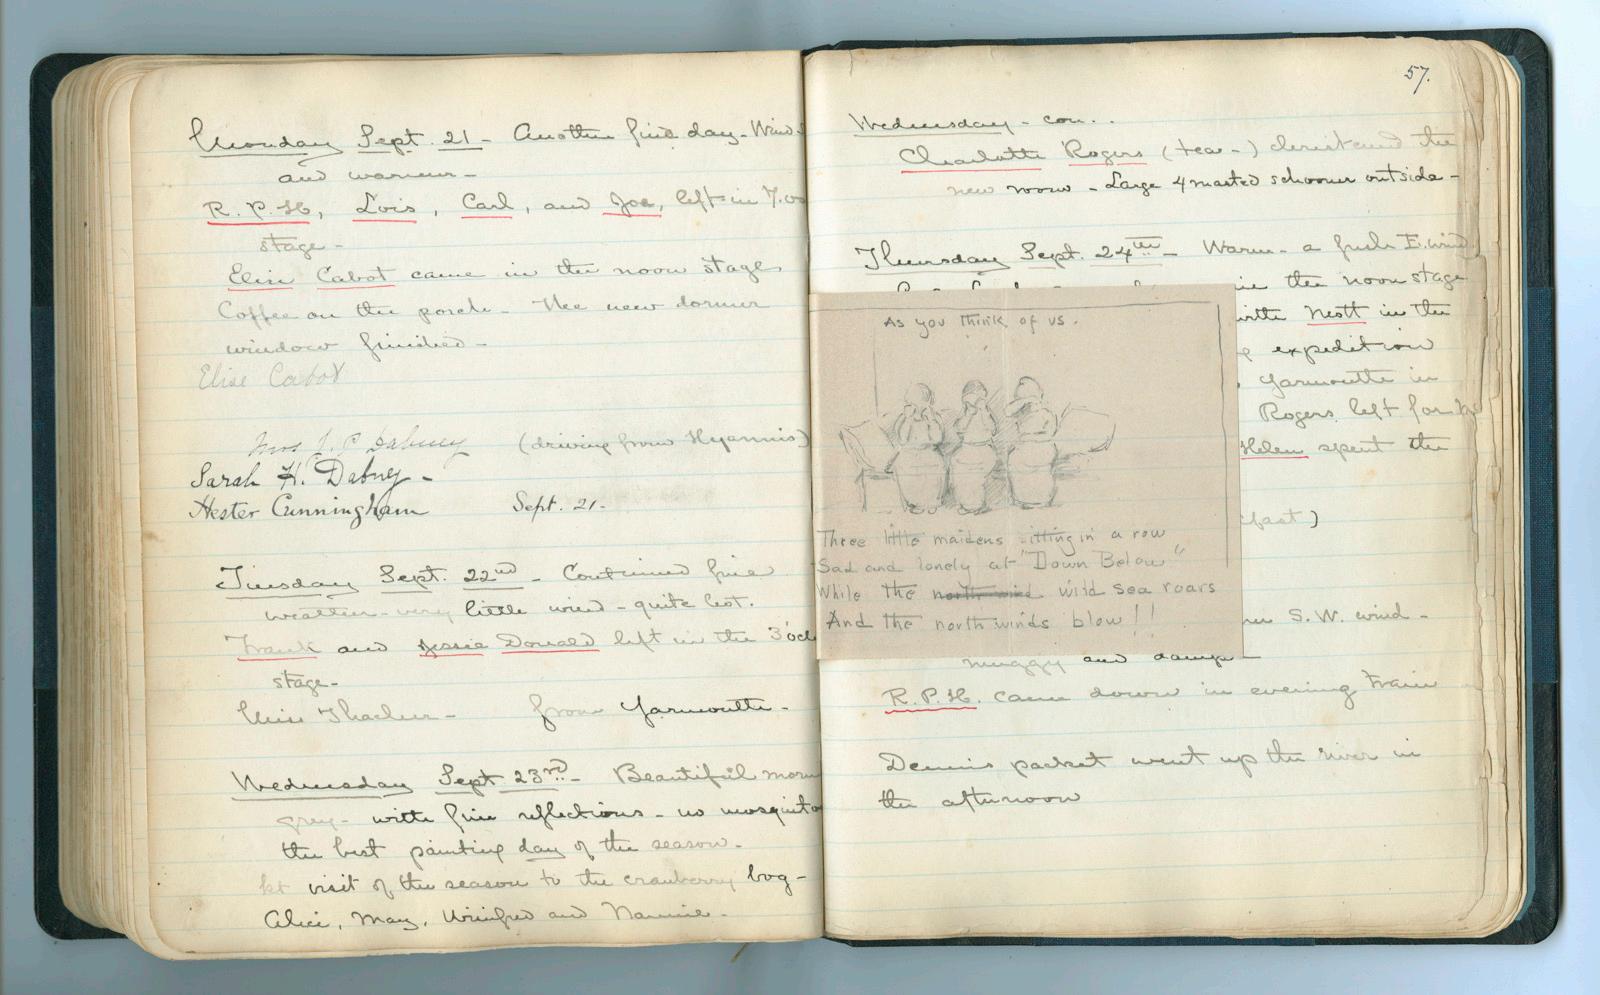 Monday Sept. 21 - Another fine day - Wind S
and warmer -
R. P. H, Lois, Carl, and Joe, left in 7.00
stage -
Elise Cabot came in the noon stage
Coffee on the porch - The new dormer
window finished -
Elise Cabot
Mrs J. P. Dabney (driving from Hyannis)
Sarah H. Dabney -
Hester Cunningham Sept. 21 -
Tuesday Sept. 22nd - Continued fine
weather - very little wind - quite hot.
Frank and Jessie Donald left in the 3 ocl
stage -
Miss Thacher - from Yarmouth -
Wednesday Sept. 23rd - Beautiful morn
grey - with fine reflections - no mosquito
the best painting day of the season -
1st visit of the season to the cranberry bog -
Alice, May, Winifred and Nannie -
57.
Wednesday - con..
Charlotte Rogers (tea -) christened the
new room - Large 4 masted schooner outside -
Thursday Sept. 24th - Warm - a fresh E. wind
in the noon stage
with Mott in the
expedition
Yarmouth in
Rogers left for
Helen spent the
fast)
S. W. wind -
muggy and damp -
R. P. H. came down in evening train
Dennis packet went up the river in
the afternoon
As you think of us.
Three little maidens sitting in a row
Sad and lonely at "Down Below"
While the north wind wild sea roars
And the north winds blow!!